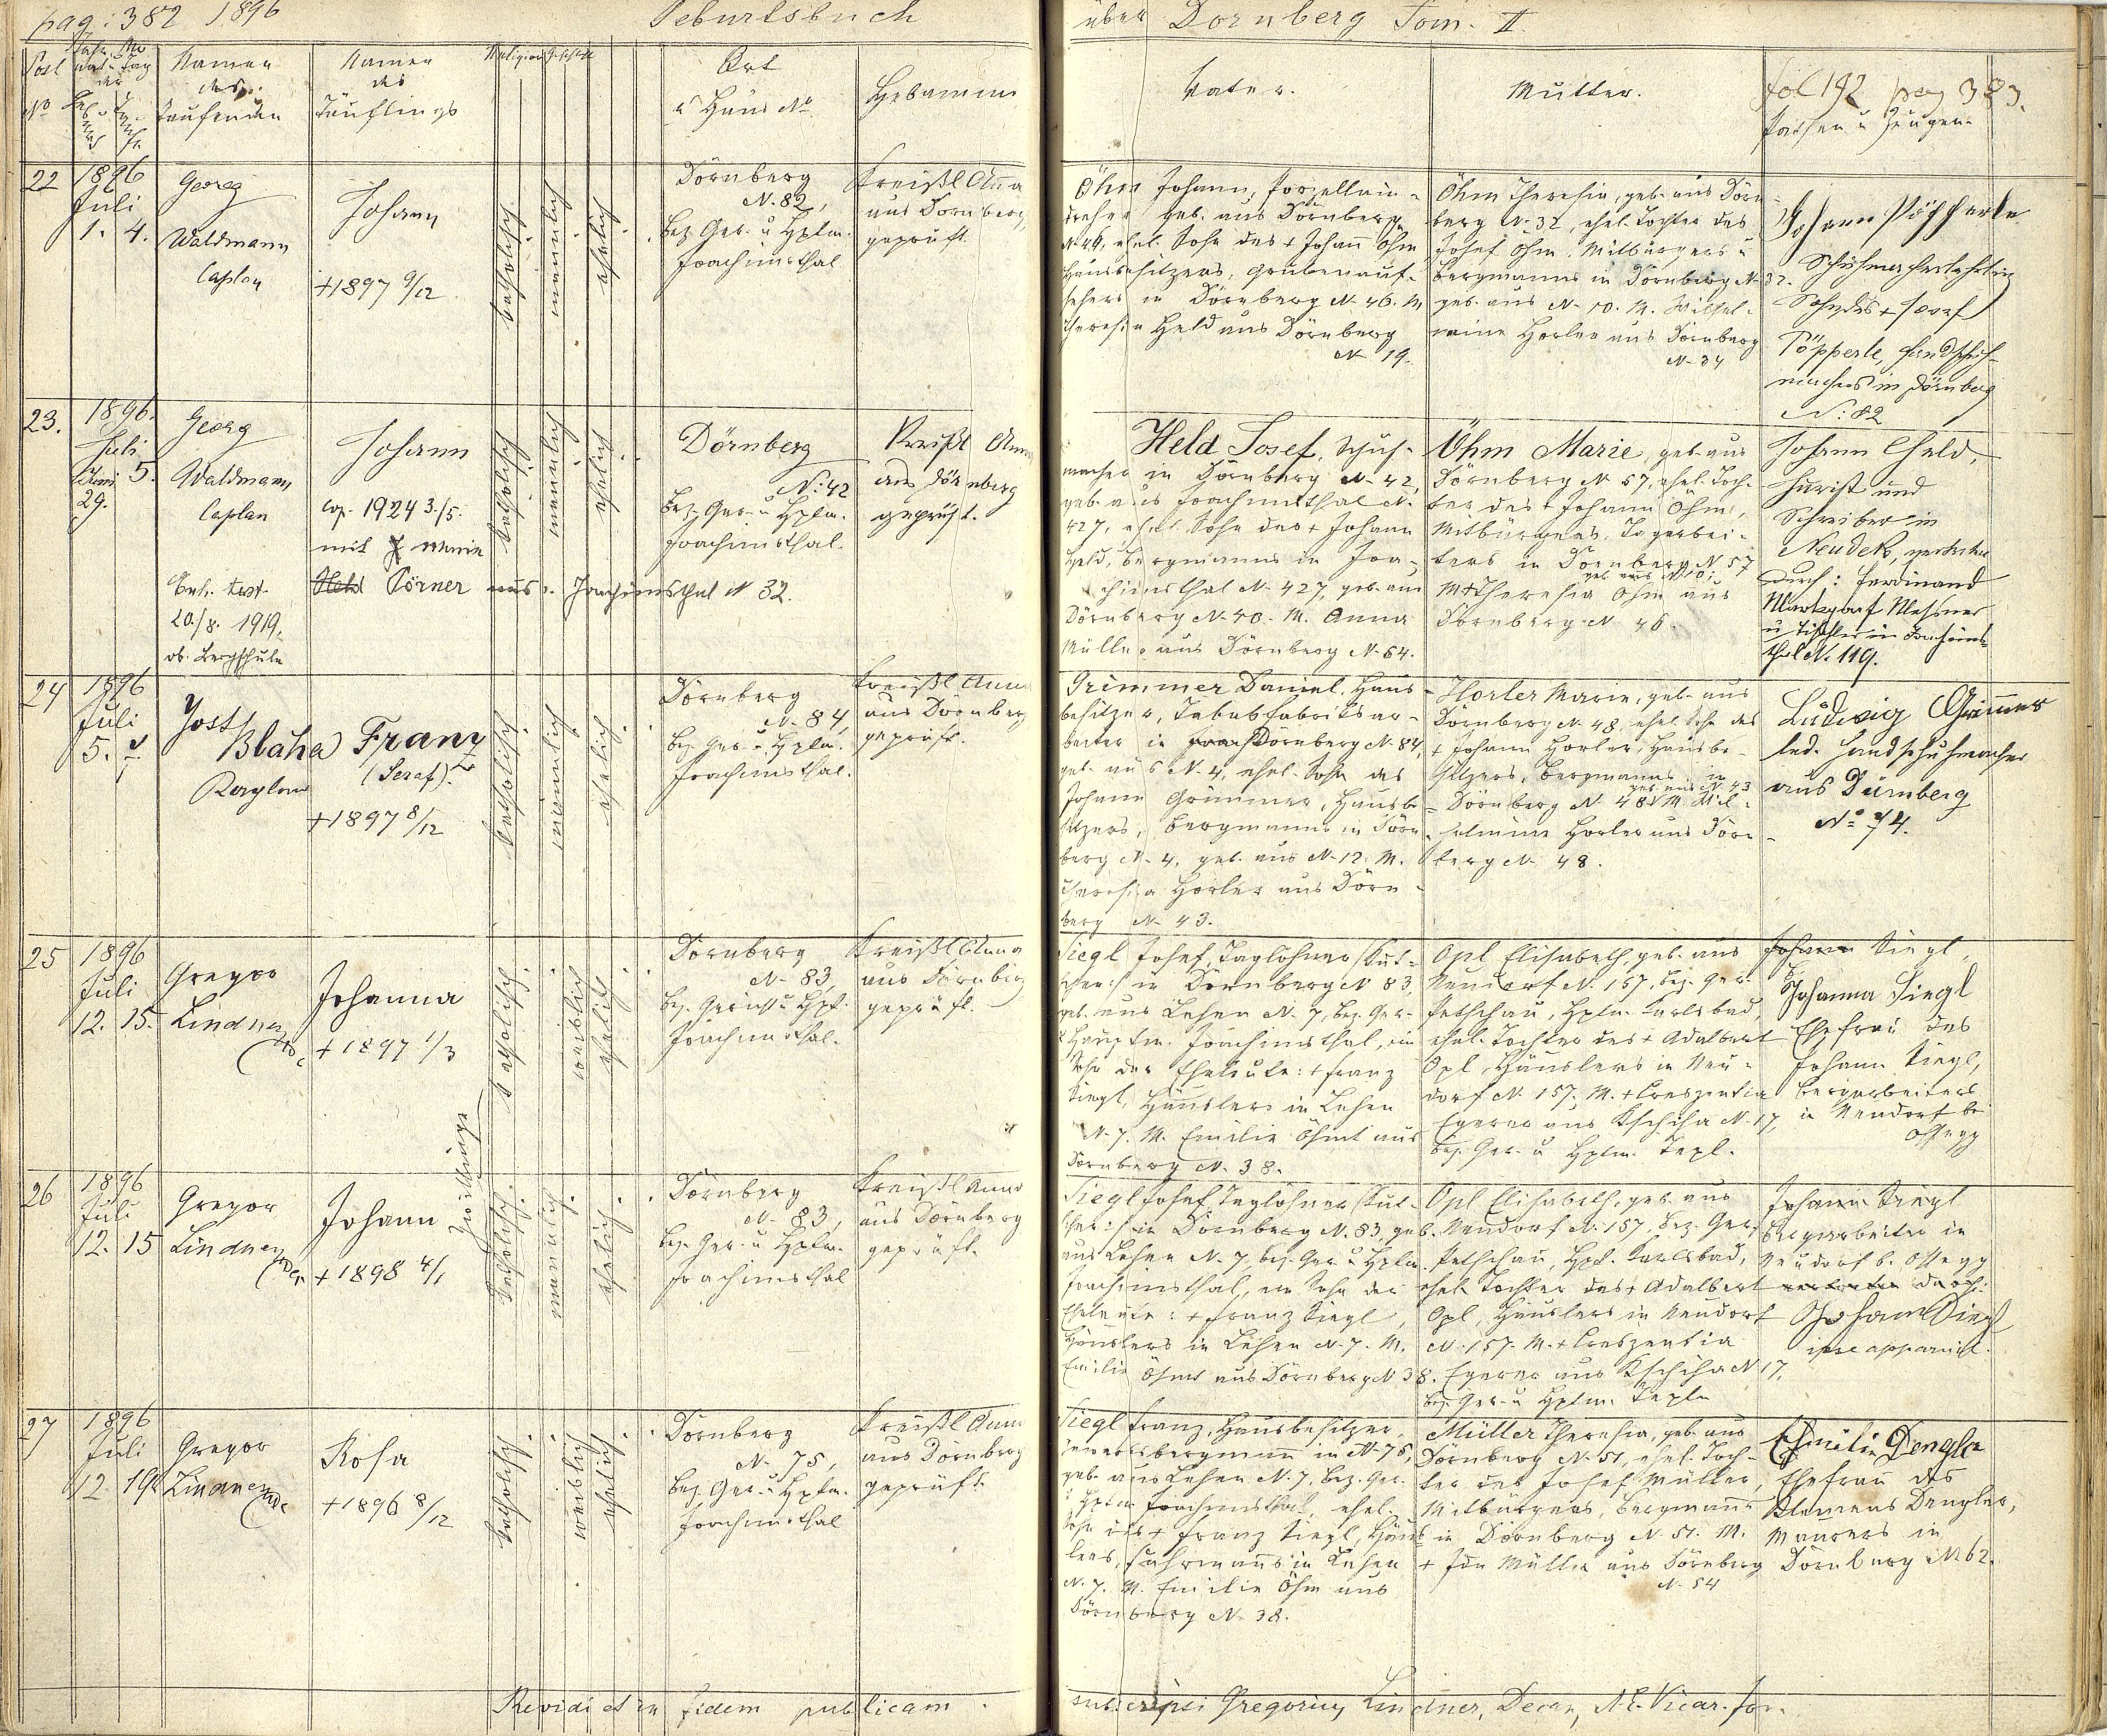 pag: 382 1896 Geburtsbuch über Dörnberg Tom. II.
Post No
Jahr, Monat u. Tag der
Namen des Taufenden
Namen des Täuflings
Religion
Ort u Haus No
Hebamme
Vater.
Mutter.
fol 192 pag 383.
Pathen u Zeugen.
22
1896
Juli
1. 4.
Georg
Waldmann
Caplan
Johann
+ 1897 9/12
katholisch
männlich
ehelich
Dörnberg
N. 82,
Bez. Ger. u Hptm.
Joachimsthal
Kreißl Anna
aus Dörnberg,
geprüft.
Öhm Johann, Porzellain-
dreher geb. aus Dörnberg
N. 46, ehel. Sohn des + Johann Öhm
Hausbesitzers, Grubenauf-
sehers in Dörnberg N. 46. M.
Theresia Held aus Dörnberg
N. 19.
Öhm Theresia, geb. aus Dörn-
berg N. 32, ehel. Tochter des
Josef Öhm, Mitbürgers u
Bergmanns in Dörnberg N. 32.
geb. aus N. 10. M. Wilhel-
mine Horler aus Dörnberg
N. 34
Johann Pöpperle
Schuhmacherlehrling
Sohn des + Josef
Pöpperle, Handschuh-
machers in Dörnberg
N: 82
23.
1896.
Juli
Juni 5.
29.
Georg
Waldmann
Caplan
Johann
cop. 1924 3./5.
mit Marie
Held Pörner aus Joachimsthal N 32.
test.
20./8. 1919.
ob. Bergschule
katholisch
männlich
ehelich
Dörnberg
N: 42
Bez. Ger. u Hptm.
Joachimsthal.
Kreißl Anna
aus Dörnberg
geprüft.
Held Josef, Schuh-
macher in Dörnberg N. 42,
geb. aus Joachimsthal N.
427, ehel. Sohn des + Johann
Held, Bergmanns in Joa-
chimsthal N. 427, geb. aus
Dörnberg N. 40. M. Anna
Müller aus Dörnberg N. 64.
Öhm Marie, geb. aus
Dörnberg N. 57, ehel. Toch-
ter des + Johann Öhm,
Mitbürgers, Tagarbei-
ters in Dörnberg N. 57
M. Theresia Öhm aus
Dörnberg N. 46.
Johann Held,
Jurist und
Schreiber in
Neudek, vertreten
durch: Ferdinand
Markgraf Messner
u Tischler in Joachims-
thal N. 119.
24
1896
Juli
5. 7.
Jost
Blaha
Kaplan
Franz
(Seraf).
+ 1897 8/12
katholisch
männlich
ehelich
Dörnberg
N. 84,
Bez. Ger. u. Hptm.
Joachimsthal.
Kreißl Anna
aus Dörnberg
geprüft.
Grimmer Daniel, Haus-
besitzer, Tabakfabriksar-
beiter in Dörnberg N. 84,
geb. aus N. 4, ehel. Sohn des
Johann Grimmer, Hausbe-
sitzers, Bergmanns in Dörn-
berg N. 4, geb. aus N. 12. M.
Theresia Horler aus Dörn-
berg N. 43.
Horler Marie, geb. aus
Dörnberg N. 48, ehel. des
+ Johann Horler, Hausbe-
sitzers, Bergmanns in
Dörnberg N. 48 geb. aus N. 43 M. Wil-
helmine Horler aus Dörn-
berg N. 48.
Ludwig Grimmer
led. Handschuhmacher
aus Dürnberg
No 74.
25
1896
Juli
12. 15.
Gregor
Lindner
Johanna
+ 1897 1/3
katholisch
weiblich
ehelich
Zwillinge
Dörnberg
N. 83,
Bez. Gericht u Hptm.
Joachimsthal.
Kreißl Anna
aus Dörnberg
geprüft.
Siegl Josef, Taglöhner /Kut-
scher:/ in Dörnberg N 83,
geb. aus Lehen N. 7, Bez. Ger.
u Hauptm. Joachimsthal, ein
Sohn der Eheleute: + Franz
Siegl, Häuslers in Lehen
N. 7. M. Emilie Öhm aus
Dörnberg N. 38.
Opl Elisabeth, geb. aus
Neudorf N. 157, Bez. Ger.
Petschau, Hptm. Karlsbad,
ehel. Tochter des + Adalbert
Opl, Häuslers in Neu-
dorf N. 157. M. + Creszentia
Egerer aus Kschiha N. 17,
Bez. Ger. u Hptm. Tepl.
Johann Siegl,
Johanna Siegl
Ehefrau des
Johann Siegl,
Bergarbeiters
in Neudorf bei
Ossegg
26
1896
Juli
12. 15
Gregor
Lindner
Johann
+ 1898 4/1
katholisch
männlich
ehelich
Dörnberg
N. 83,
Bez. Ger. u Hptm.
Joachimsthal
Kreißl Anna
aus Dörnberg
geprüft.
Siegl Josef Taglöhner /Kut-
scher:/ in Dörnberg N. 83, geb.
aus Lehen N. 7, Bez. Ger u Hptm.
Joachimsthal, ein Sohn der
Eheleute: + Franz Siegl,
Häuslers in Lehen N. 7. M.
Emilie Öhm aus Dörnberg N 38.
Opl Elisabeth, geb. aus
Neudorf N. 157, Bez. Ger.
Petschau, Hptm. Karlsbad,
ehel. Tochter des + Adalbert
Opl, Häuslers in Neudorf
N. 157. M. + Creszentia
Egerer aus Kschiha N 17,
Bez. Ger. u Hptm. Tepl
Johann Siegl
Bergarbeiter in
Neudorf b. Ossegg
vertreten durch:
Johann Siegl
ipse apparuit.
27
1896
Juli
12 19
Gregor
Lindner
Rosa
+ 1896 8/12
katholisch
weiblich
ehelich
Dörnberg
N. 75,
Bez. Ger. u Hptm.
Joachimsthal
Kreißl Anna
aus Dörnberg
geprüft.
Siegl Franz, Hausbesitzer,
bergmann in N. 75,
geb. aus Lehen N. 7, Bez. Ger.
u Hptm. Joachimsthal, ehel.
Sohn des + Franz Siegl, Häus-
lers, Fuhrmanns in Lehen
N. 7. M. Emilie Öhm aus
Dörnberg N. 38.
Müller Theresia, geb. aus
Dörnberg N. 51, ehel. Toch-
ter des Josef Müller,
Mitbürgers, Bergmanns
in Dörnberg N. 51. M.
+ Ida Müller aus Dörnberg
N. 54
Emilie Dengler
Ehefrau des
Klemens Dengler,
Maurers in
Dörnberg N. 62.
Revidi et in fidem publicam subscripsi Gregorius Lindner, Decan, A. E. Vicar. for.